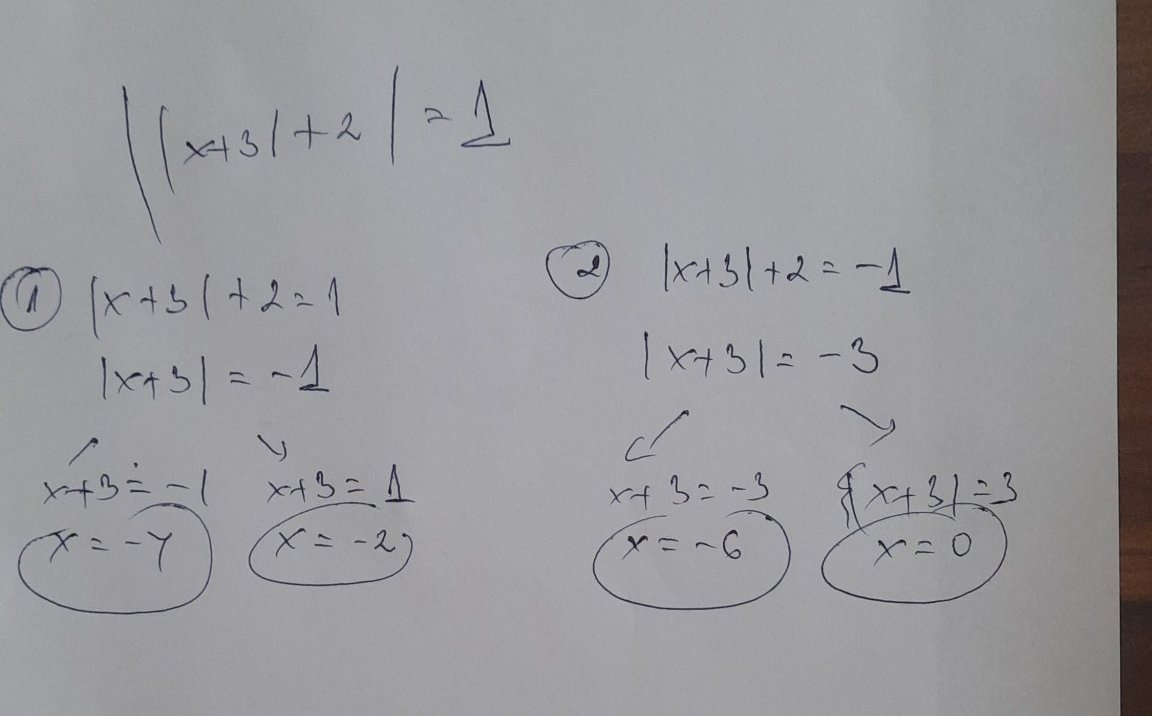 ||x+3|+2|=1
① |x+3|+2=1
|x+3|=-1
x+3=-1 x+3=1
x=-4 x=-2
② |x+3|+2=-1
|x+3|=-3
x+3=-3 |x+3|=3
x=-6 x=0